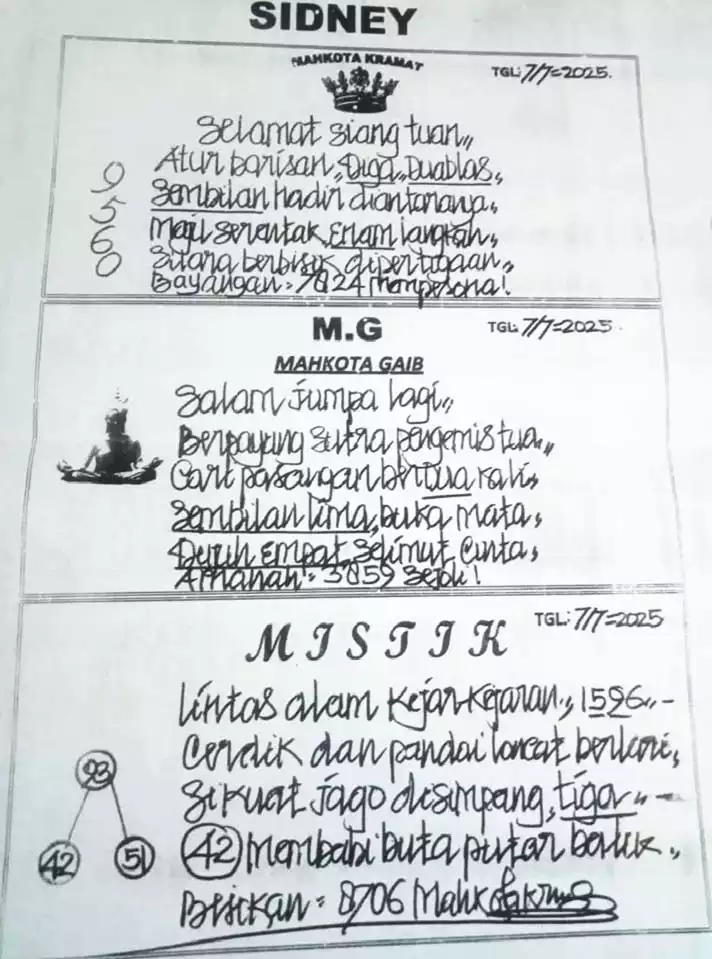 SIDNEY
MAHKOTA KRAMAT
TGL: 7/7=2025.
Selamat siang tuan,,
Atur barisan, Diga,, Duablas,
Sembilan hadir diantaranya,
9
5
6
0
Maju serentak, Enam langkah,
Sutara berbisik dipertigaan,,
Bayangan = 7824 Mempesona!
M.G
TGL: 7/7=2025.
MAHKOTA GAIB
Salam jumpa lagi,,
Berpayung Sutra pengemis tua,,
Cari pasangan berdua kali,
Sembilan lima, buka mata,
Demuh empat, Selimut Cinta,
Amanah = 3859 Sejoli!
MISTIK
TGL: 7/7=2025
Lintas alam Kejar-Kejaran,, 1596,,-
Cerdik dan pandai loncat berlari,
Si kuat jago disimpang, tiga,,-
93
42
51
42 Membabi buta putar balik,,
Bisikan = 8706